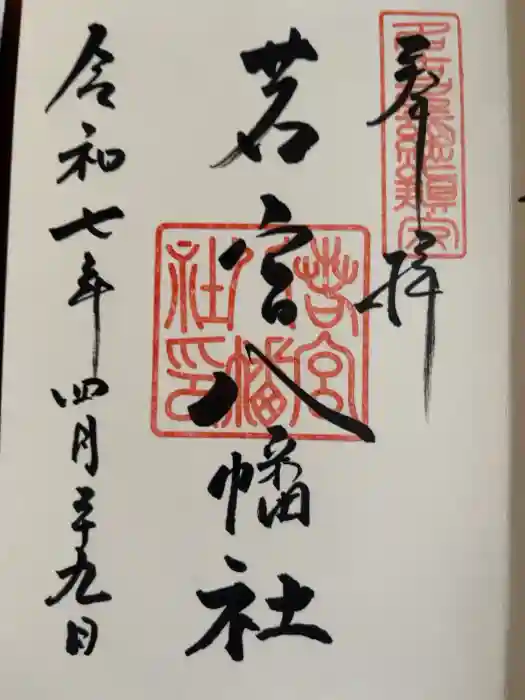 奉拝
若宮八幡社
令和七年四月二十九日
若宮
八幡
社印